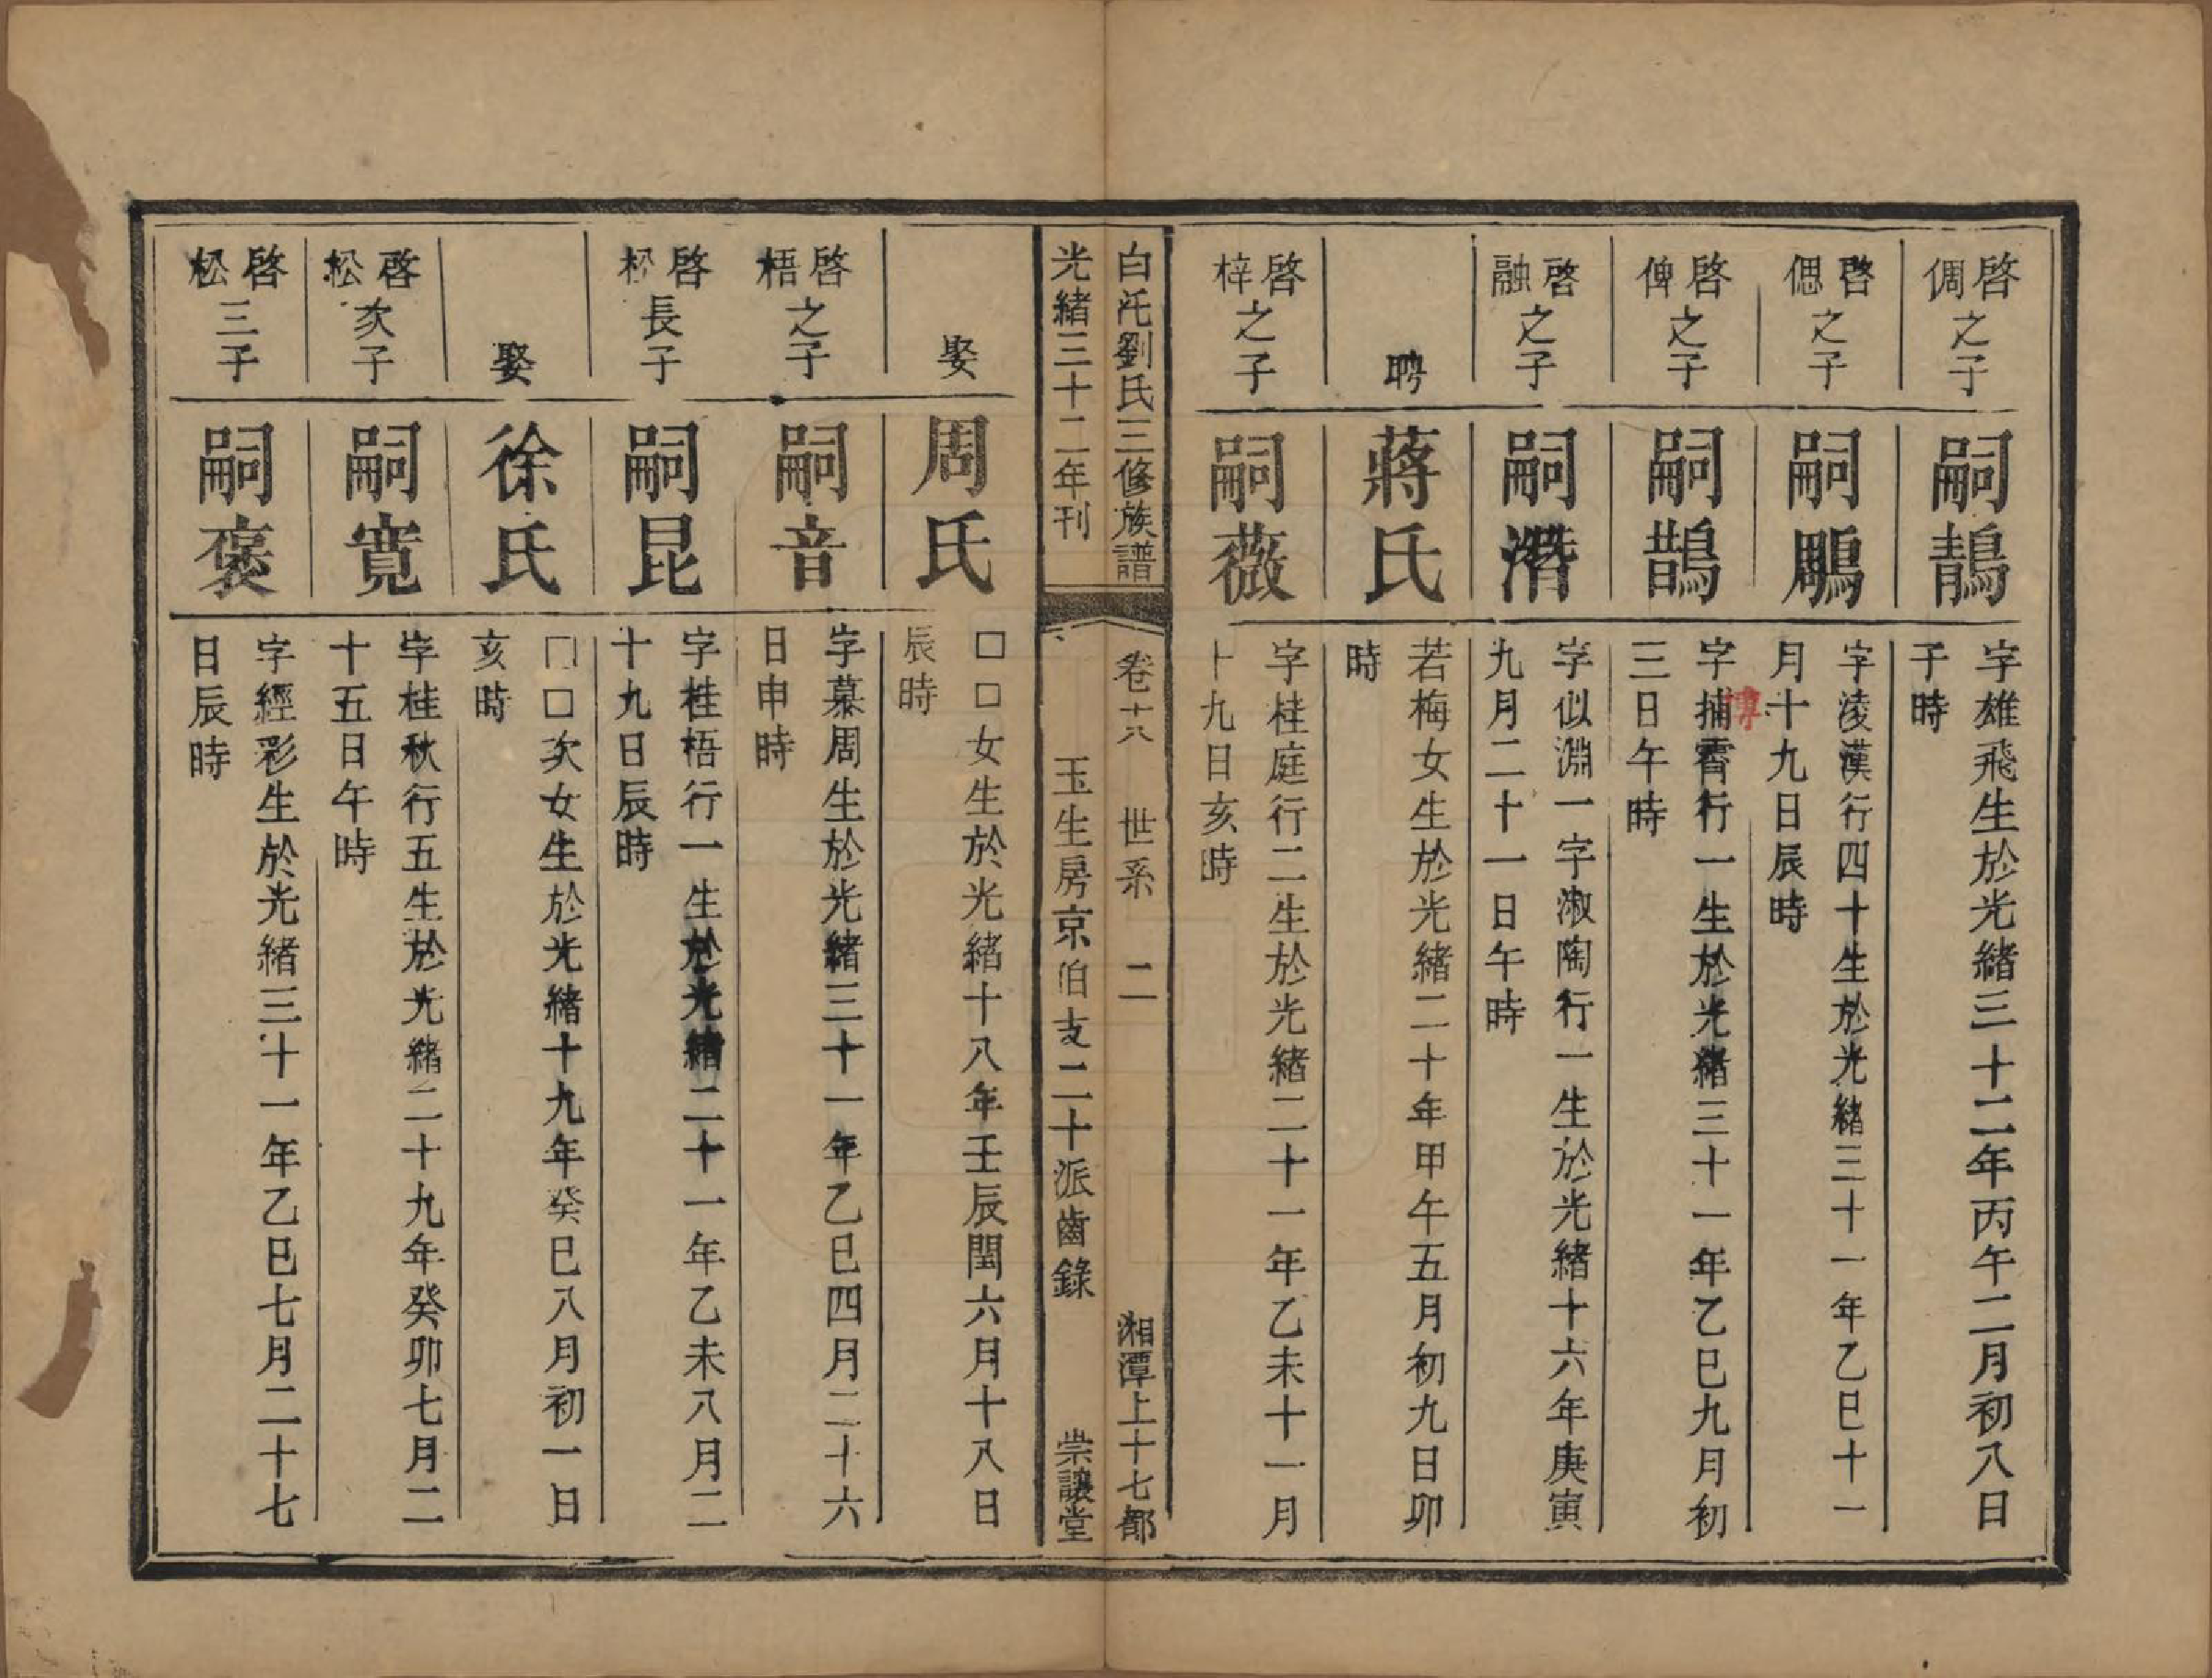 啓倜之子
嗣鶄
字雄飛生於光緒三十二年丙午二月初八日
子時
啓偲之子
嗣鵰
字淩漢行四十生於光緒三十一年乙巳十一
月十九日辰時
啓俾之子
嗣鵲
字摶霄行一生於光緒三十一年乙巳九月初
三日午時
啓融之子
嗣潛
字似淵一字淑陶行一生於光緒十六年庚寅
九月二十一日午時
聘
蔣氏
若梅女生於光緒二十年甲午五月初九日卯
時
啓梓之子
嗣薇
字桂庭行二生於光緒二十一年乙未十一月
十九日亥時
白沲劉氏三修族譜 卷十八 世系 二 湘潭上十七都
光緒三十二年刊 玉生房京伯支二十派齒錄 崇讓堂
娶
周氏
□□女生於光緒十八年壬辰閏六月十八日
辰時
啓梧之子
嗣音
字慕周生於光緒三十一年乙巳四月二十六
日申時
啓松長子
嗣昆
字桂梧行一生於光緒二十一年乙未八月二
十九日辰時
娶
徐氏
□□次女生於光緒十九年癸巳八月初一日
亥時
啓松次子
嗣寬
字桂秋行五生於光緒二十九年癸卯七月二
十五日午時
啓松三子
嗣褒
字經彩生於光緒三十一年乙巳七月二十七
日辰時